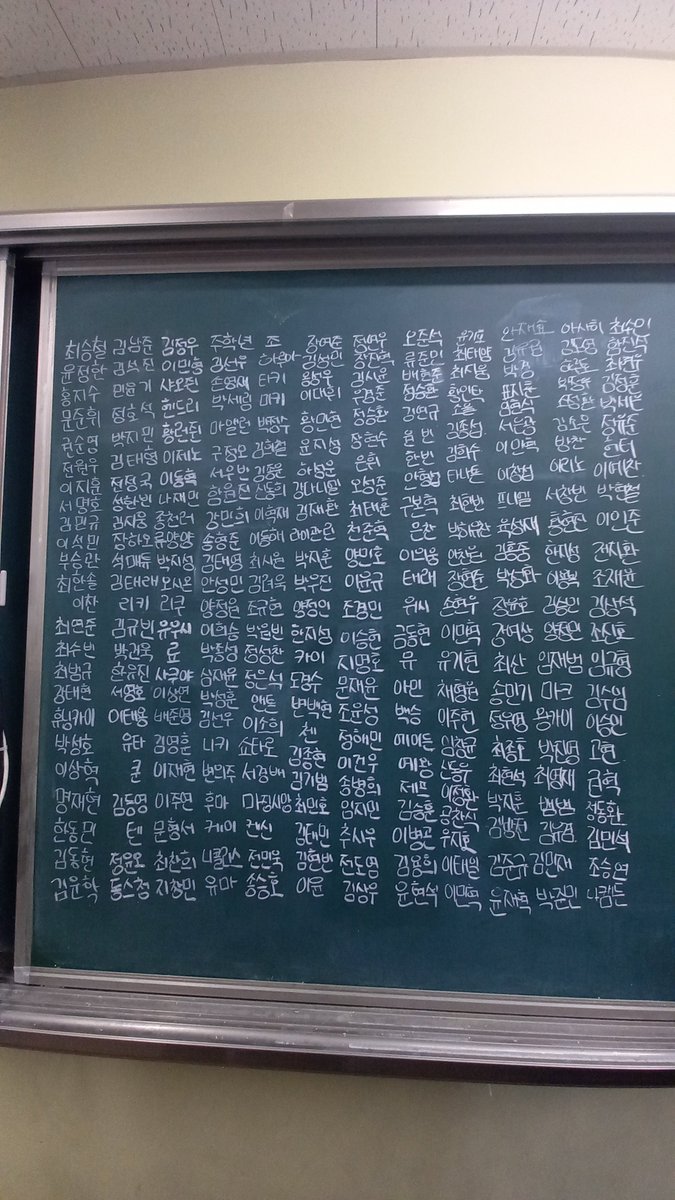 최승철
윤정한
홍지수
문준휘
권순영
전원우
이지훈
서명호
김민규
이석민
부승관
최한솔
이찬
최연준
최수빈
최범규
강태현
휴닝카이
박성호
이상혁
명재현
한동민
김동현
김운학
김남준
김석진
민윤기
정호석
박지민
김태형
전정국
성한빈
김지웅
장하오
석매튜
김태래
리키
김규빈
박건욱
한유진
서영호
이태용
유타
쿤
김동영
텐
정윤오
동스청
김정우
이민형
샤오쥔
헨드리
황런쥔
이제노
이동혁
나재민
종천러
류양양
박지성
오시온
리쿠
유우시
료
사쿠야
이상연
배준영
김영훈
이재현
이주연
문형서
최찬희
지창민
주학년
김선우
손영재
박세림
구정모
서우빈
함원진
강민희
송형준
김태영
안성민
양정원
이희승
박종성
심재윤
박성훈
김선우
니키
변의주
후마
케이
니콜라스
유마
조
하루아
타키
마키
박정수
김희철
김종운
신동희
이혁재
이동해
최시원
김려욱
조규현
박원빈
정성찬
정은석
앤톤
이소희
쇼타로
서경배
마징시앙
캔신
전민욱
송승호
김성민
이대휘
황민현
윤지성
하성운
강다니엘
김재환
라이관린
박지훈
박우진
양정인
한지성
카이
도경수
변백현
첸
김종현
김기범
최민호
김태민
김현빈
이윤
정연우
장진혁
김시윤
정승환
장현수
은휘
오성준
최태훈
천준혁
양민호
이윤규
조경민
이승헌
지명호
문재윤
조윤성
정해민
이건우
송병희
임지민
추시우
전도염
김상우
오준석
류준민
배현준
정승환
김연규
현빈
한빈
구본혁
은찬
이의웅
태래
위시
금동현
유
아민
백승
에이든
예왕
제프
김승훈
이병곤
김용희
윤현석
최태양
최지웅
소울
김종섭
최현빈
박유찬
장현준
손현우
이민혁
유기현
채형원
이주헌
임창균
신동우
이정환
공찬식
유지호
이태일
이민혁
안재효
김유권
박경
표지훈
임현식
서은광
이민혁
이창섭
프니엘
육성재
김홍중
박성화
정윤호
강여상
최산
송민기
정우영
최종호
최현석
박지훈
김준규
윤재혁
아사히
김도영
하루토
박정우
소정환
방찬
이리노
서창빈
황현진
한지성
이용복
김승민
양정인
임재범
마크
왕카이
박진영
최영재
뱀뱀
김유겸
김민재
박건민
최수인
함진식
정유준
앤더
이태찬
박현철
이인준
전지환
조재윤
김상식
최지호
임규형
김수임
이승민
고현
권혁
정동환
김민석
조승연